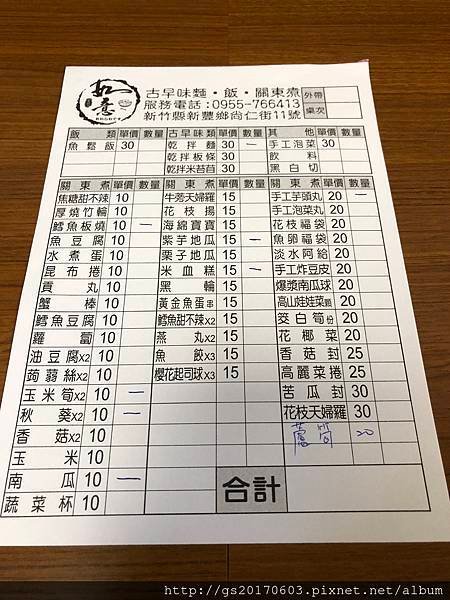 如意
古早味麵・飯・關東煮
外帶
服務電話:0955-766413
桌次
新竹縣新豐鄉尚仁街11號
飯類 單價 數量 古早味類 單價 數量 其他 單價 數量
魚鬆飯 30 乾拌麵 30 一 手工泡菜 30
乾拌板條 30 飲料
乾拌米苔目 30 黑白切
關東煮 單價 數量 關東煮 單價 數量 關東煮 單價 數量
焦糖甜不辣 10 牛蒡天婦羅 15 手工芋頭丸 20 一
厚燒竹輪 10 花枝揚 15 手工泡菜丸 20
鱈魚板燒 10 一 海綿寶寶 15 花枝福袋 20
魚豆腐 10 紫芋地瓜 15 一 魚卵福袋 20
水煮蛋 10 栗子地瓜 15 淡水阿給 20
昆布捲 10 米血糕 15 一 手工炸豆皮 20
貢丸 10 黑輪 15 爆漿南瓜球 20
蟹棒 10 黃金魚蛋串 15 高山娃娃菜顆 20
鱈魚豆腐 10 鱈魚甜不辣X2 15 筊白筍份 20
蘿蔔 10 燕丸X2 15 花椰菜 20
油豆腐X2 10 魚餃X3 15 香菇封 25
蒟蒻絲X2 10 櫻花起司球X3 15 高麗菜捲 25
玉米筍X2 10 一 苦瓜封 30
秋葵X2 10 一 花枝天婦羅 30
香菇X2 10 20
玉米 10 合計
南瓜 10 一
蔬菜杯 10
http://gs20170603.pixnet.net/album